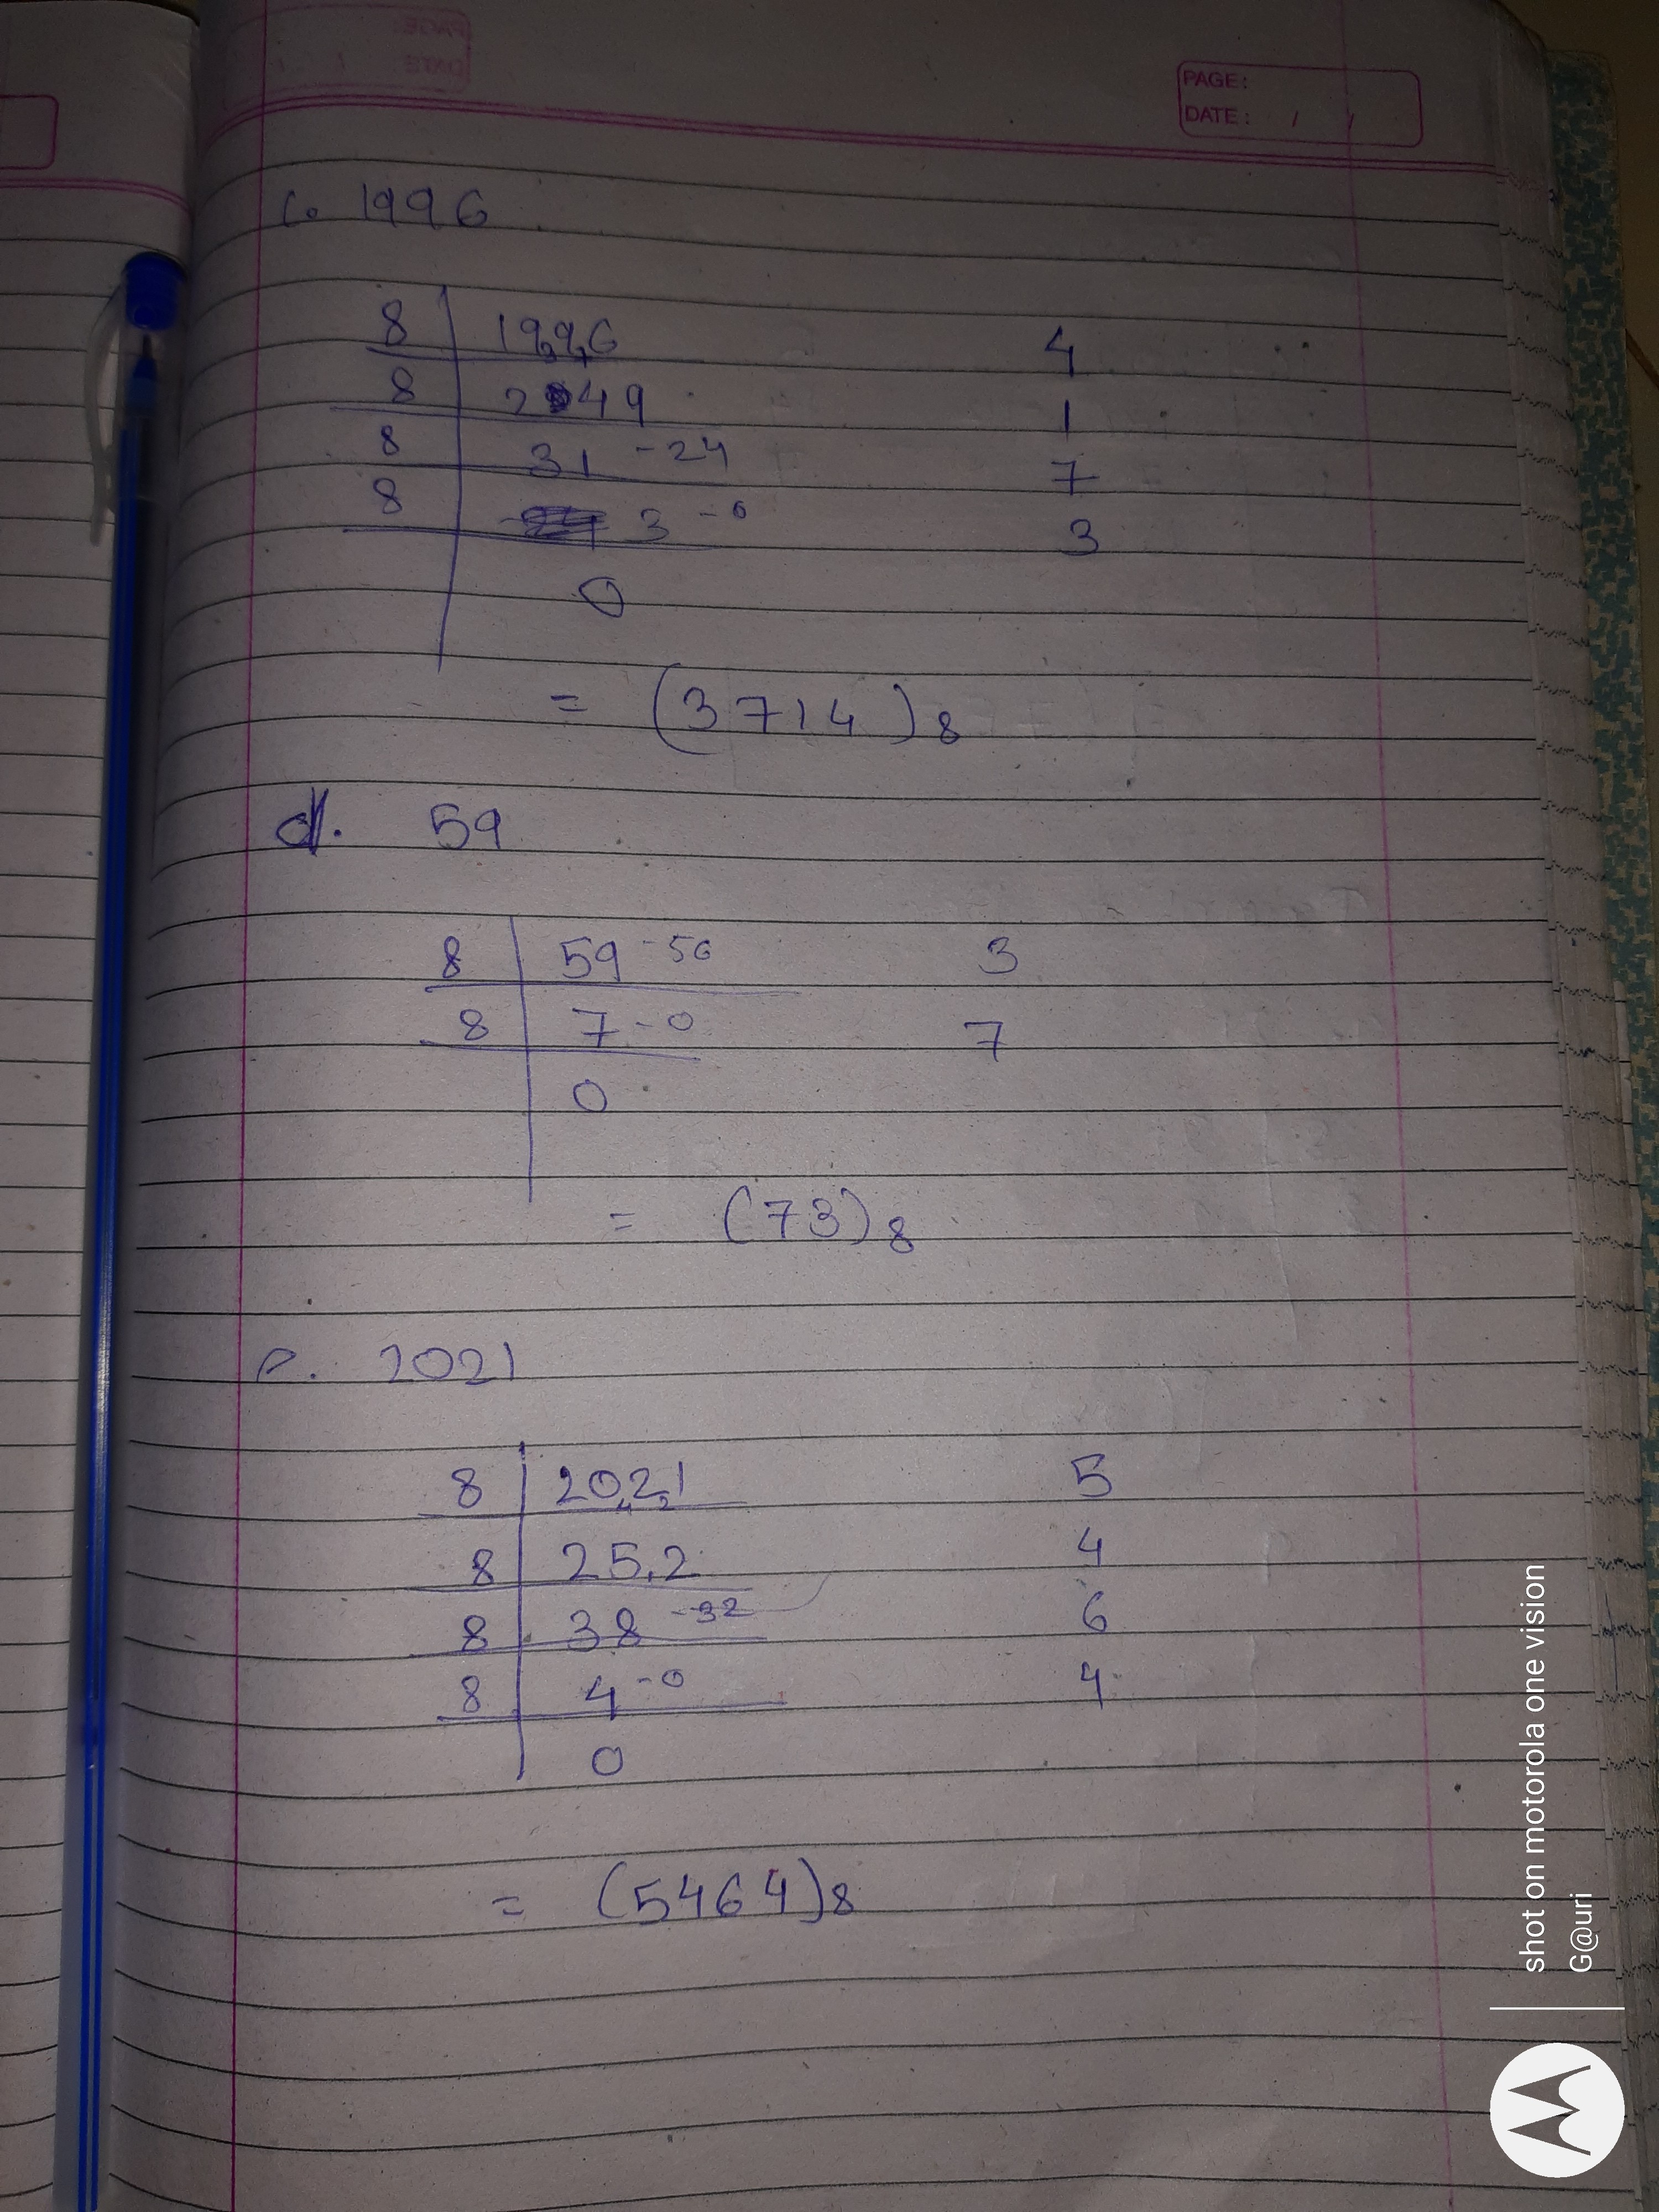 PAGE:
DATE: / /
c. 1996
8 1996 4
8 249 1
8 31 -24 7
8 3 -0 3
0
= (3714)8
d. 59
8 59 -56 3
8 7 -0 7
0
= (73)8
e. 2021
8 2021 5
8 252 4
8 38 -32 6
8 4 -0 4
0
= (5464)8
shot on motorola one vision
G@uri